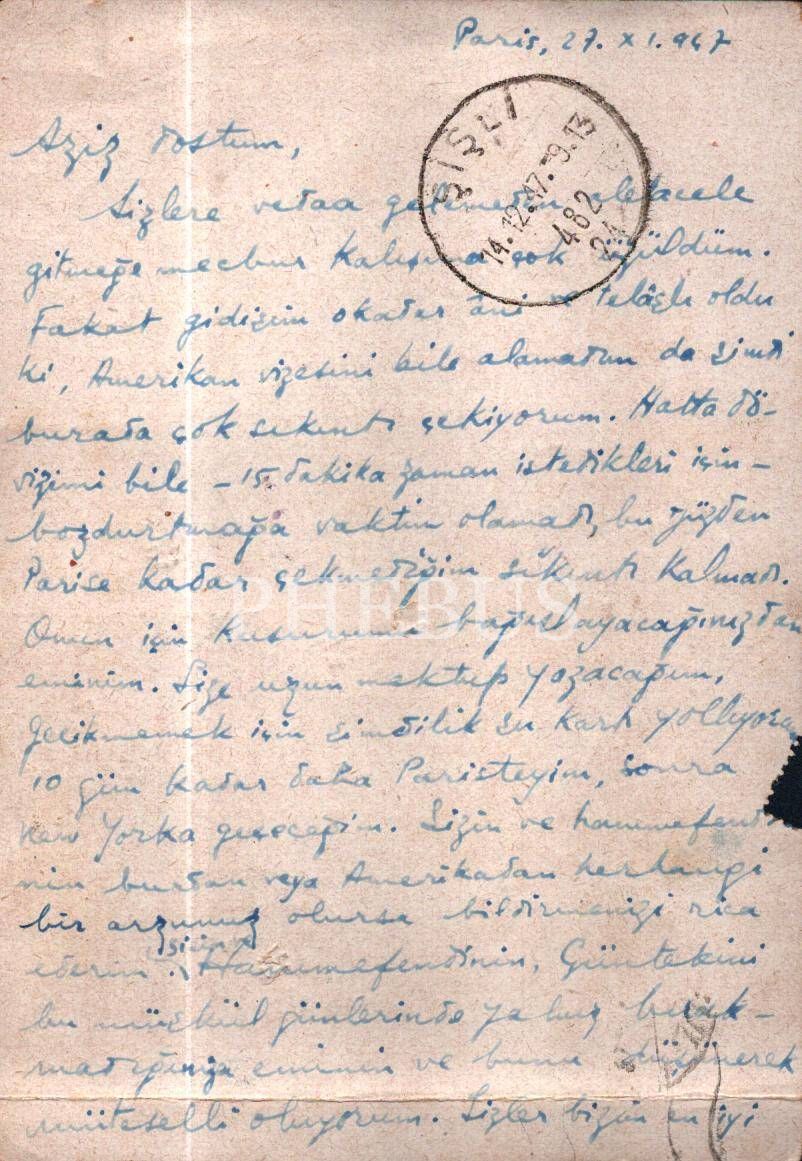 Paris, 27. XI. 947
ŞİŞLİ
14.12.47.-9.13
482
24
Aziz dostum,
Sizlere vedaa gelemeden alelacele
gitmeğe mecbur kalışıma çok üzüldüm.
Fakat gidişim okadar âni ve telâşlı oldu
ki, Amerikan vizesini bile alamadım da şimdi
burada çok sıkıntı çekiyorum. Hatta dö-
vizimi bile - 15 dakika zaman istedikleri için -
bozdurtmağa vaktim olamadı, bu yüzden
Parise kadar çekmediğim sıkıntı kalmadı.
Onun için kusurumu bağışlayacağınızdan
eminim. Size uzun mektup yazacağım,
gecikmemek için şimdilik şu kartı yolluyorum
10 gün kadar daha Paristeyim, sonra
New Yorka geçeceğim. Sizin ve hanımefendi
nin burdan veya Amerikadan herhangi
bir arzunuz olursa bildirmenizi rica
ederim. Hanımefendinin, Güntekini
bu müşkül günlerinde yalnız bırak-
madığınıza eminim ve bunu düşünerek
müteselli oluyorum. Sizler bizim en iyi
PHEBUS